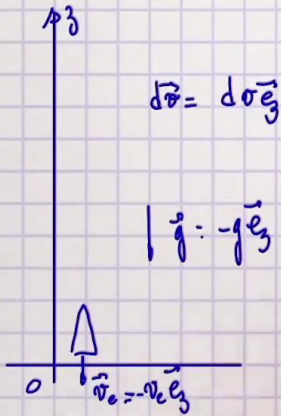 z
d\vec{v} = dv \vec{e}_z
\vec{g} = -g\vec{e}_z
O
\vec{v}_e = -v_e \vec{e}_z